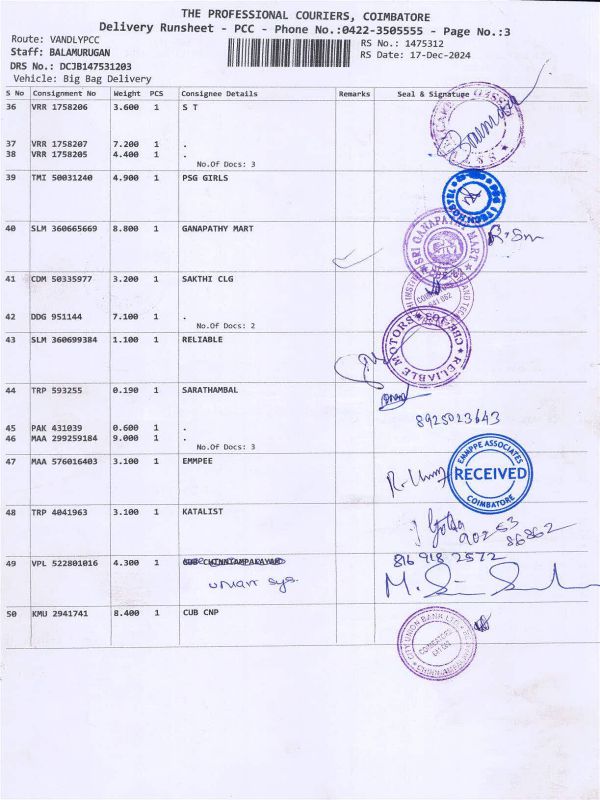 THE PROFESSIONAL COURIERS, COIMBATORE
Delivery Runsheet - PCC - Phone No.:0422-3505555 - Page No.:3
Route: VANDLYPCC
RS No.: 1475312
Staff: BALAMURUGAN
RS Date: 17-Dec-2024
DRS No.: DCJB147531203
Vehicle: Big Bag Delivery
S No Consignment No Weight PCS Consignee Details Remarks Seal & Signature
36 VRR 1758206 3.600 1 S T
37 VRR 1758207 7.200 1 .
38 VRR 1758205 4.400 1 .
No.Of Docs: 3
39 TMI 50031240 4.900 1 PSG GIRLS
40 SLM 360665669 8.800 1 GANAPATHY MART
SRI GANAPATHY MART
41 CDM 50335977 3.200 1 SAKTHI CLG
42 DDG 951144 7.100 1 .
No.Of Docs: 2
43 SLM 360699384 1.100 1 RELIABLE
RELIABLE MOTORS
44 TRP 593255 0.190 1 SARATHAMBAL
8925023643
45 PAK 431039 0.600 1 .
46 MAA 299259184 9.000 1 .
No.Of Docs: 3
47 MAA 576016403 3.100 1 EMMPEE
EMMPPE ASSOCIATES
RECEIVED
COIMBATORE
48 TRP 4041963 3.100 1 KATALIST
90253
86862
49 VPL 522801016 4.300 1
816 918 2572
50 KMU 2941741 8.400 1 CUB CNP
CITY UNION BANK LTD